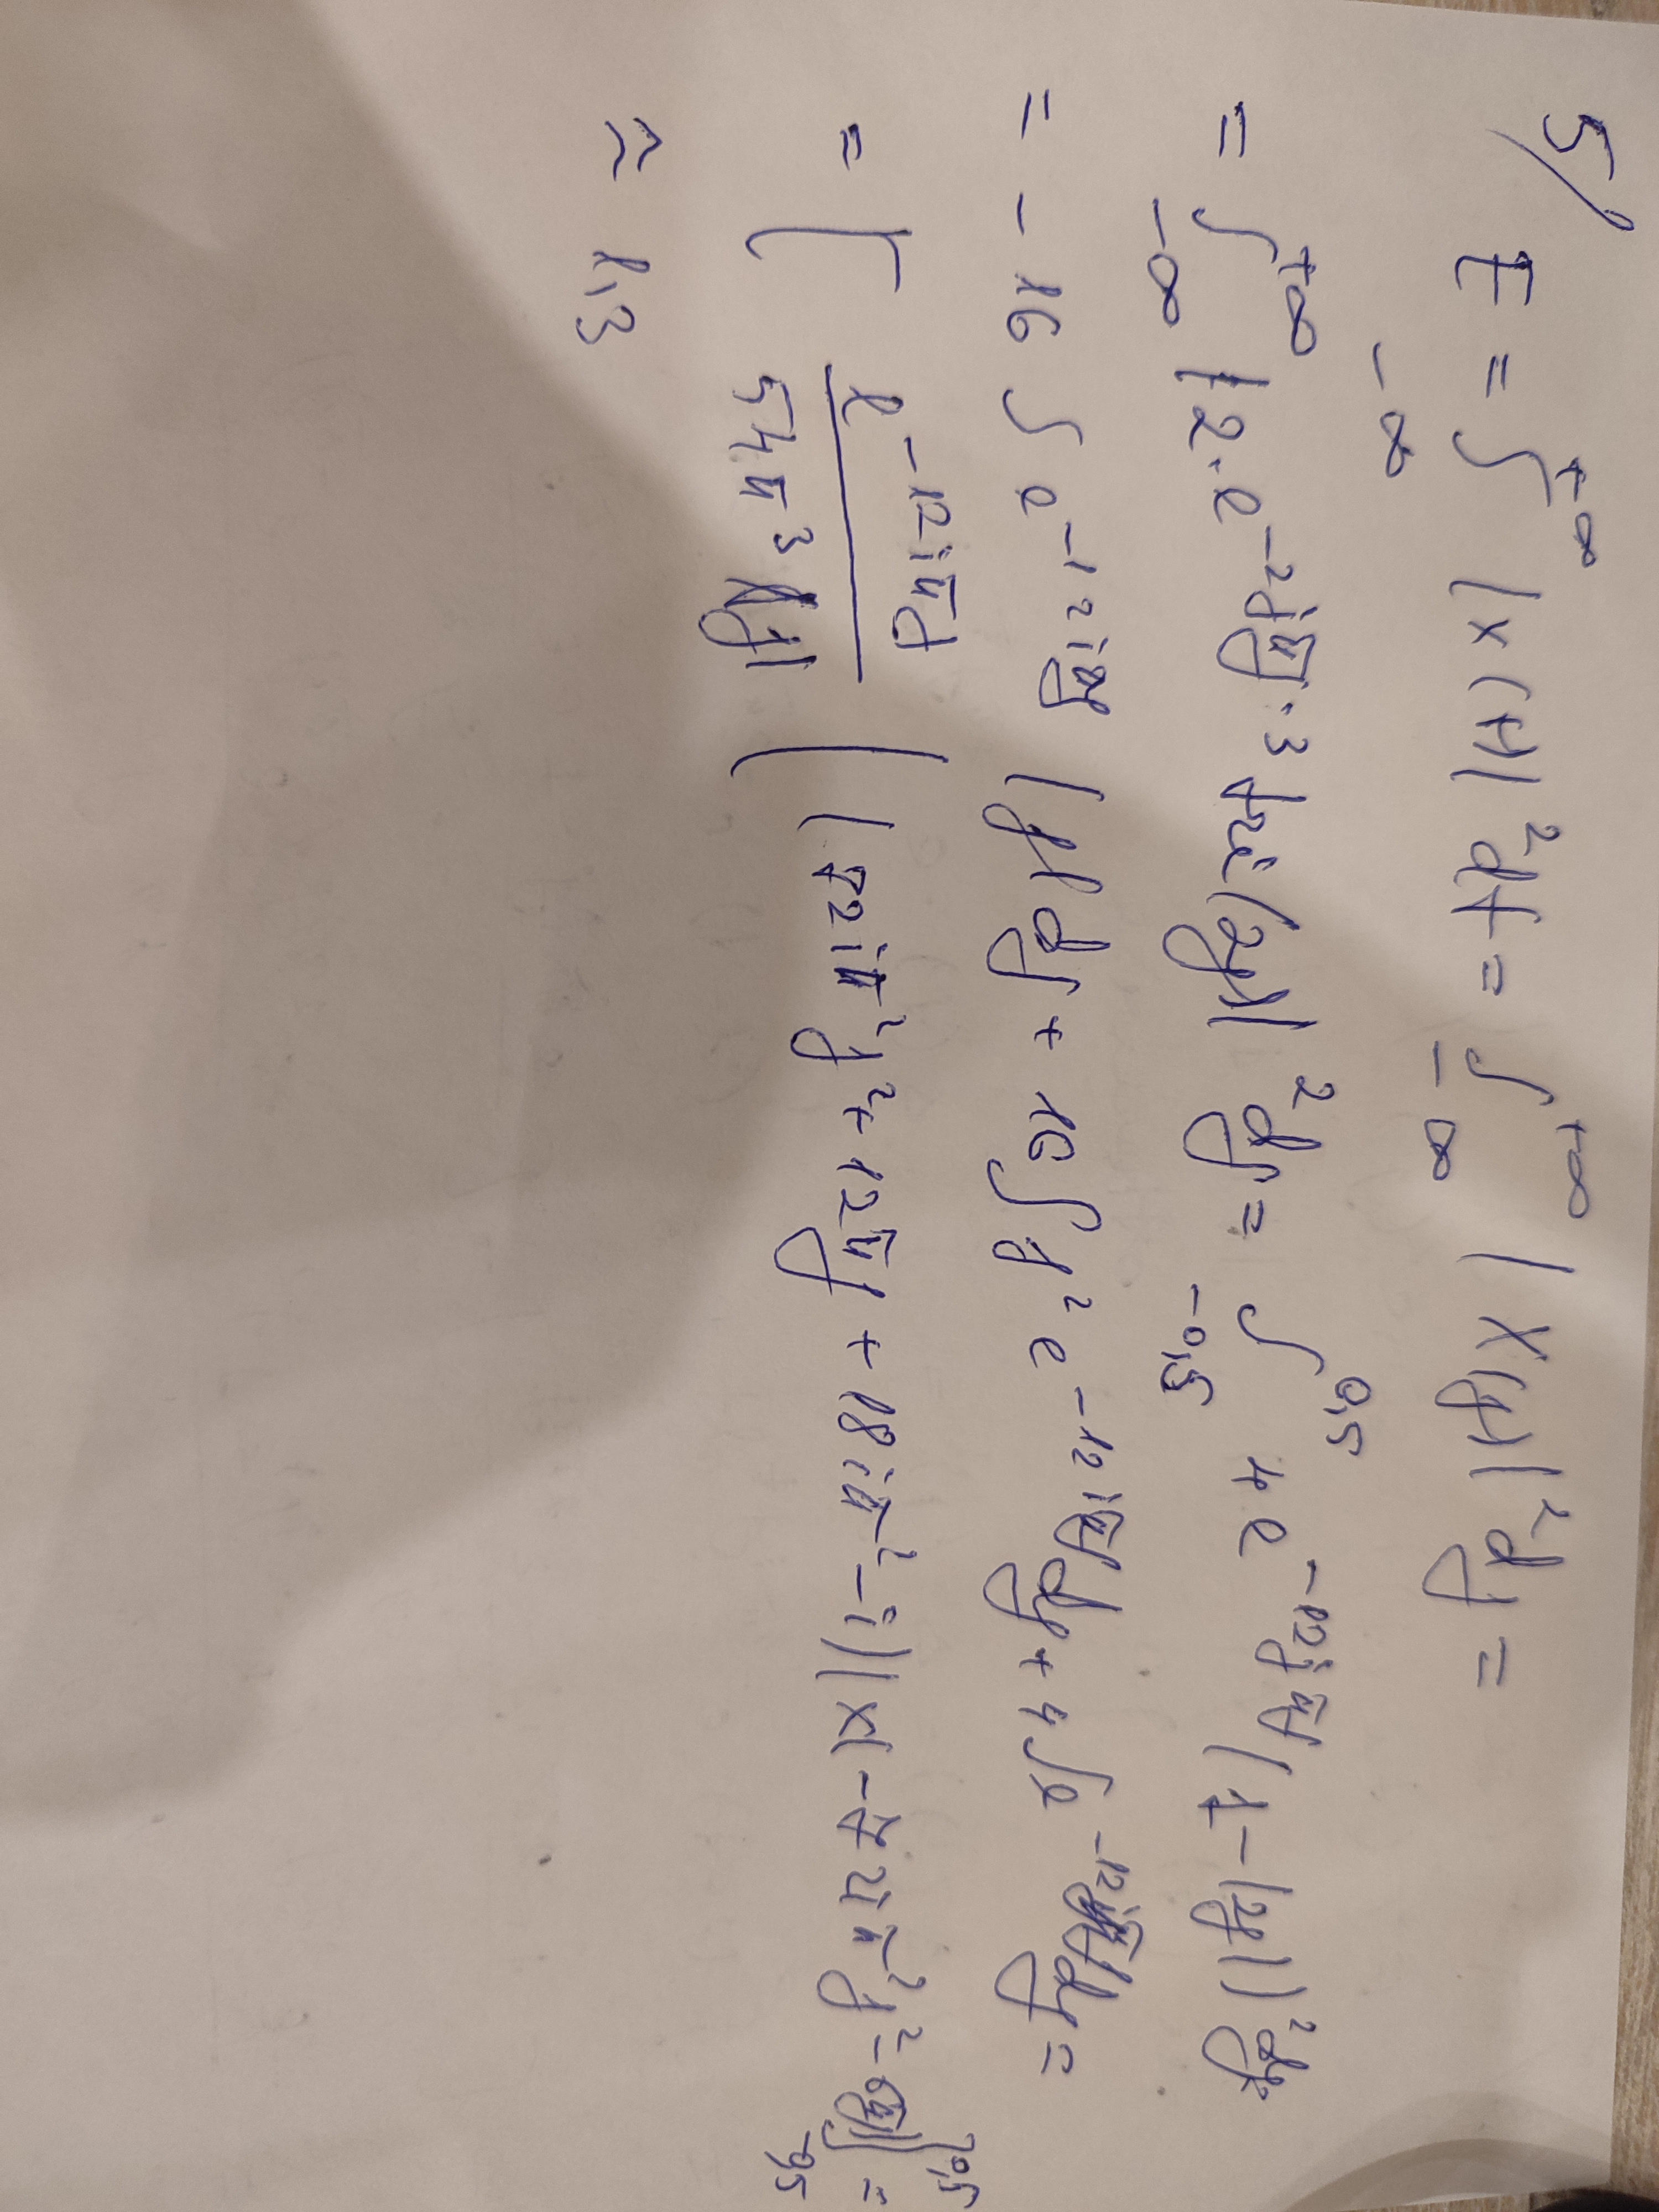 5/
E = ∫_{-∞}^{+∞} |x(t)|² dt = ∫_{-∞}^{+∞} |X(f)|² df =
= ∫_{-∞}^{+∞} |2·e^{-2jπf·3} tri(2f)|² df = ∫_{-0,5}^{0,5} 4e^{-12jπf} (1-|2f|)² df =
= -16 ∫ e^{-12iπf} |f| df + 16 ∫ f² e^{-12iπf} df + 4 ∫ e^{-12iπf} df =
= [ e^{-12iπf} / 54π³|f| ( (72iπ²f² + 12πf + 18iπ² - i) |x| - 72iπ²f² - 6πf) ]_{-0,5}^{0,5} =
≈ 1,3